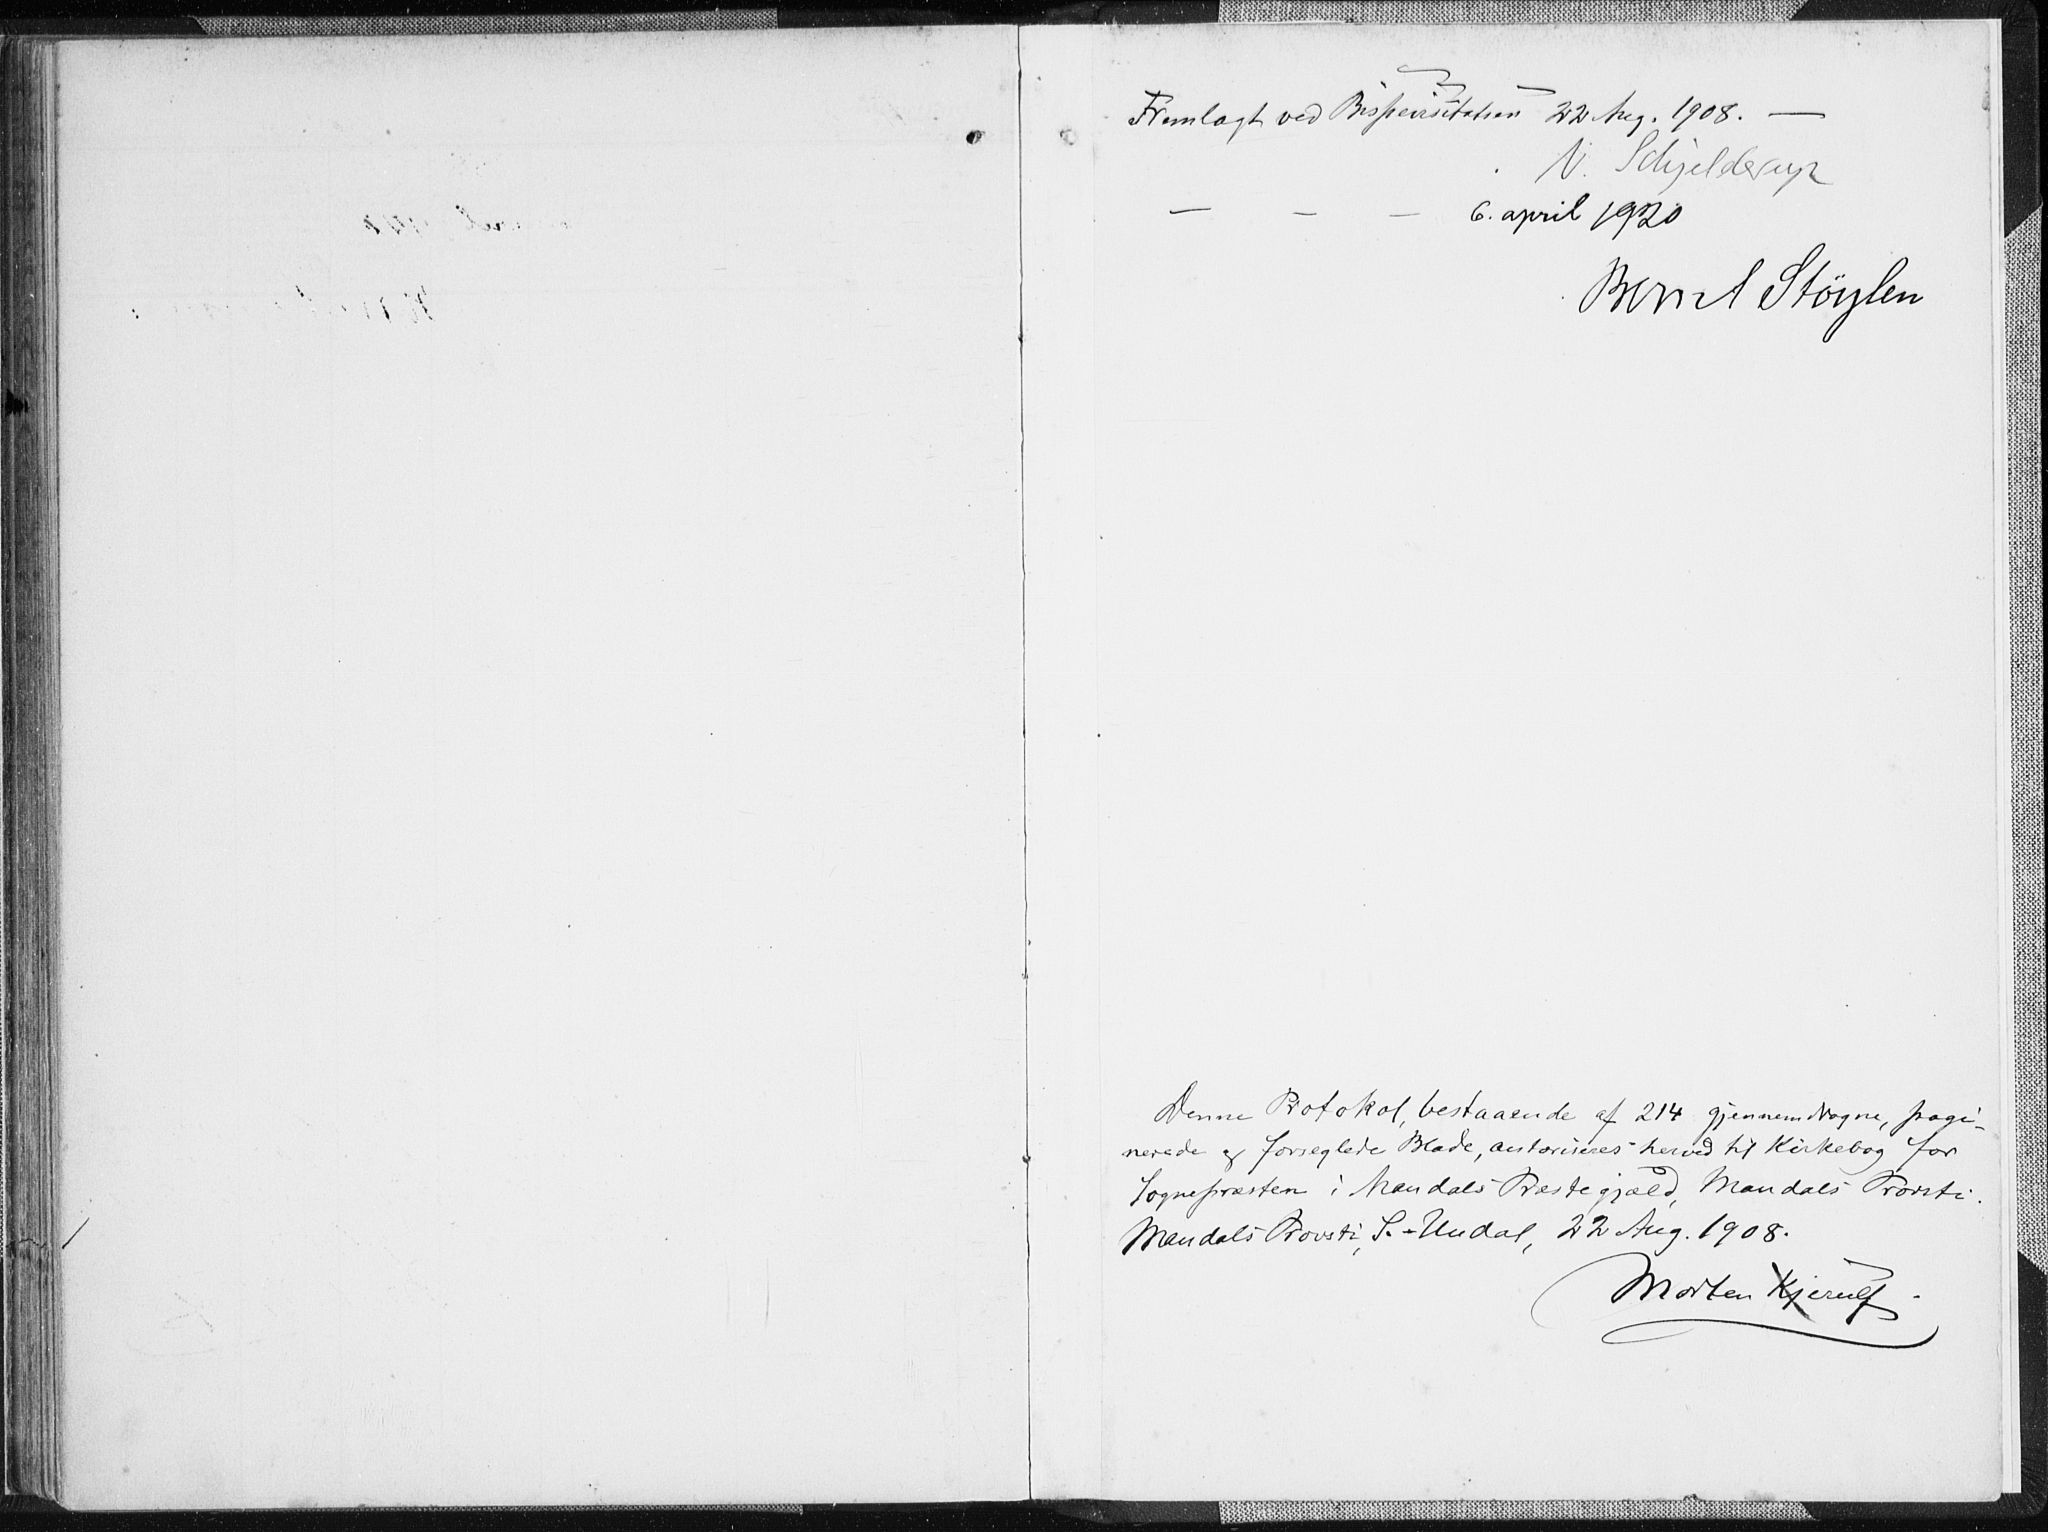 Fremlagt ved Bispevisitatsen 22 Aug. 1908. —
N. Schjelderup
— — — 6. april 1920
Bernt Støylen
Denne Protokol, bestaaende af 214 gjennemdragne, pagi-
nerede og forseglede Blade, autoriseres herved til Kirkebog for
Sognepræsten i Mandals Præstegjæld, Mandals Provsti.
Mandals Provsti, S.-Undal, 22 Aug. 1908.
Morten Kjerulf.